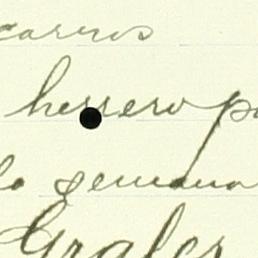 carros
herrero po
la semana
Grales